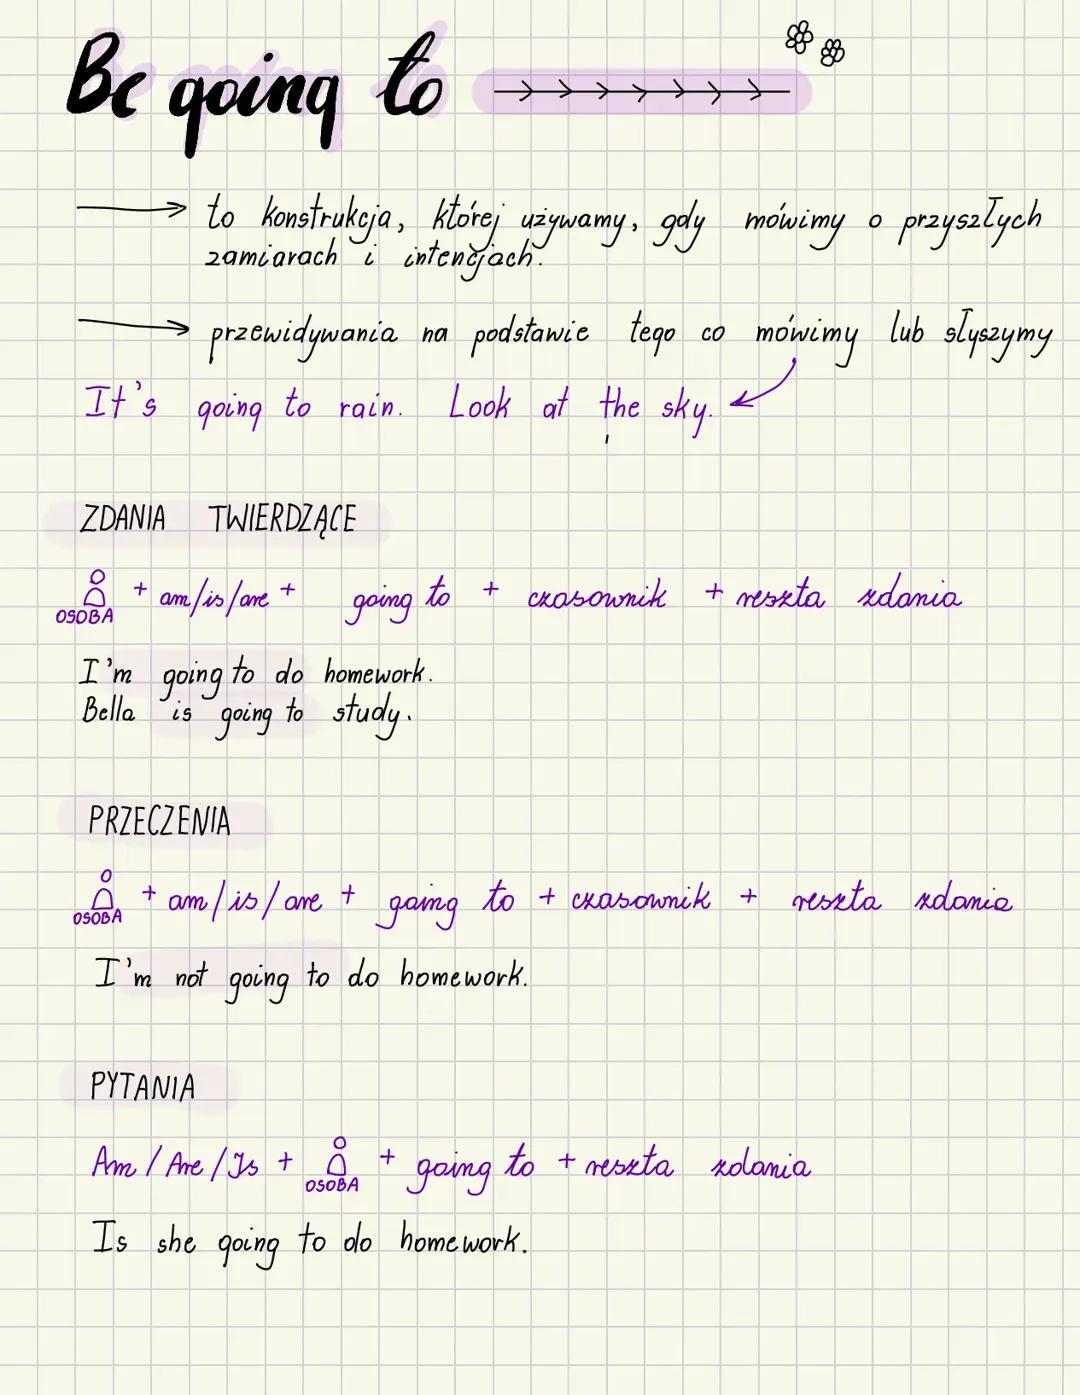 Be going to
to konstrukcja, której używamy, gdy mówimy o przyszłych
zamiarach i intencjach.
przewidywania na podstawie tego co mówimy lub słyszymy
It's going to rain. Look at the sky.
ZDANIA TWIERDZĄCE
OSOBA + am/is/are + going to + czasownik + reszta zdania
I'm going to do homework.
Bella is going to study.
PRZECZENIA
OSOBA + am/is/are + going to + czasownik + reszta zdania
I'm not going to do homework.
PYTANIA
Am/Are/Is + OSOBA + going to + reszta zdania
Is she going to do homework.